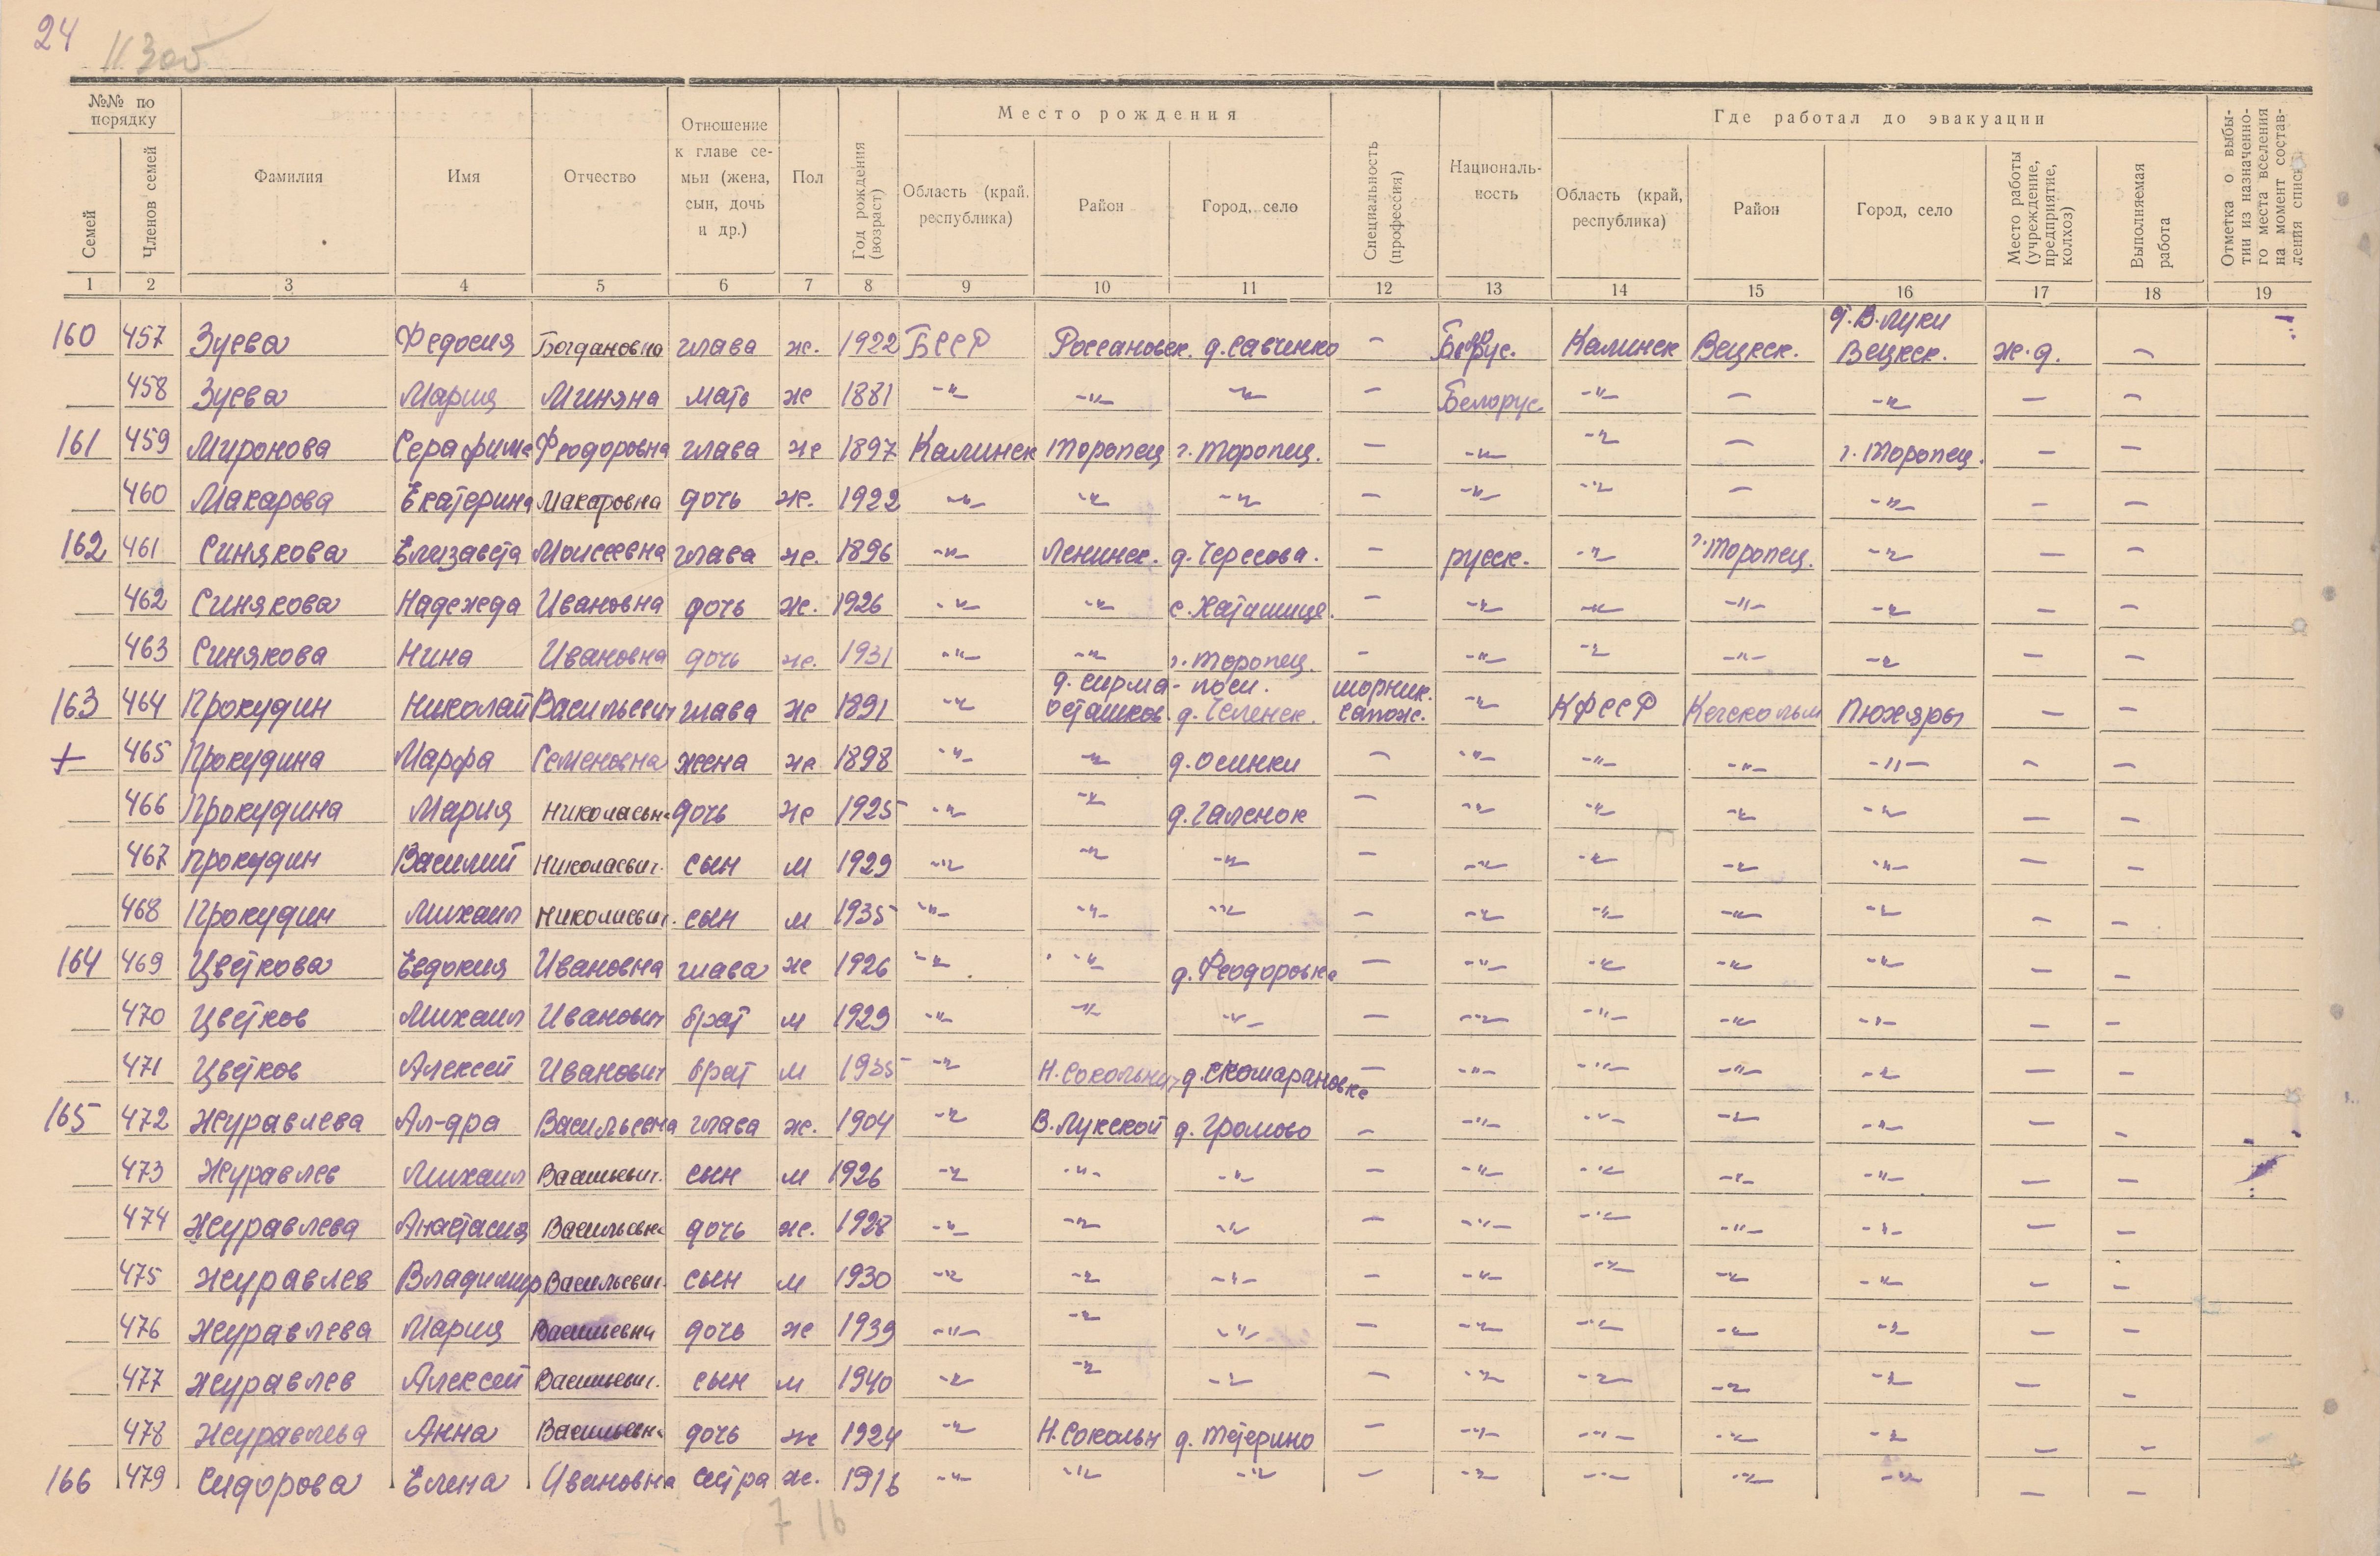 24
11 3об
№№ по порядку | Фамилия | Имя | Отчество | Отношение к главе семьи (жена, сын, дочь и др.) | Пол | Год рождения (возраст) | Место рождения | Специальность (профессия) | Националь-ность | Где работал до эвакуации | Отметка о выбы-тии из назначенно-го места вселения на момент состав-ления списка
Семей | Членов семей | Область (край, республика) | Район | Город, село | Область (край, республика) | Район | Город, село | Место работы (учреждение, предприятие, колхоз) | Выполняемая работа
1 2 3 4 5 6 7 8 9 10 11 12 13 14 15 16 17 18 19
г. В. Луки
160 457 Зуева Федосия Богдановна глава ж. 1922 БССР Россановск. д. Савченко – Белорус. Калинск Вецкск. Вецкск. ж.д. –
458 Зуева Мария Миняна мать ж 1881 -"- -"- -"- – Белорус. -"- – -"- – –
161 459 Миронова Серафима Феодоровна глава ж 1897 Калинск Торопец г. Торопец. – -"- -"- – г. Торопец. – –
460 Макарова Екатерина Макаровна дочь ж. 1922 -"- -"- -"- – -"- -"- – -"- – –
162 461 Синякова Елизавета Моисеевна глава ж. 1896 -"- Ленинск. д. Чересова. – русск. -"- г. Торопец. -"- – –
462 Синякова Надежда Ивановна дочь ж. 1926 -"- -"- – -"- -"- -"- -"- – –
463 Синякова Нина Ивановна дочь ж. 1931 -"- -"- г. Торопец. – -"- -"- -"- -"- – –
д. Сирма- поси. шорник.
163 464 Прокудин Николай Васильевич глава ж 1891 -"- Осташков. д. Челенск. сапож. -"- КФССР Кегскольм Пюхяры – –
+ 465 Прокудина Марфа Семеновна жена ж 1898 -"- -"- д. Осинки – -"- -"- -"- -"- – –
466 Прокудина Мария Николаевна дочь ж 1925 -"- -"- д. Галенок – -"- -"- -"- -"- – –
467 Прокудин Василий Николаевич. сын м 1929 -"- -"- -"- – -"- -"- -"- -"- – –
468 Прокудин Михаил Николаевич. сын м 1935 -"- -"- -"- – -"- -"- -"- -"- – –
164 469 Цветкова Евдокия Ивановна глава ж 1926 -"- -"- д. Феодоровка – -"- -"- -"- -"- – –
470 Цветков Михаил Иванович брат м 1929 -"- -"- -"- – -"- -"- -"- -"- – –
471 Цветков Алексей Иванович брат м 1935 -"- Н. Сокольнич д. Скомарановка – -"- -"- -"- -"- – –
165 472 Журавлева Ал-дра Васильевна глава ж. 1904 -"- В. Лукской д. Громово – -"- -"- -"- -"- – –
473 Журавлев Михаил Васильевич. сын м 1926 -"- -"- -"- – -"- -"- -"- -"- – –
474 Журавлева Анастасия Васильевна дочь ж. 1928 -"- -"- -"- – -"- -"- -"- -"- – –
475 Журавлев Владимир Васильевич. сын м 1930 -"- -"- -"- – -"- -"- -"- -"- – –
476 Журавлева Мария Васильевна дочь ж 1939 -"- -"- -"- – -"- -"- -"- -"- – –
477 Журавлев Алексей Васильевич. сын м 1940 -"- -"- -"- – -"- -"- -"- -"- – –
478 Журавлева Анна Васильевна дочь ж 1924 -"- Н. Сокольн д. Тетерино – -"- -"- -"- -"- – –
166 479 Сидорова Елена Ивановна сестра ж. 1916 -"- -"- -"- – -"- -"- -"- -"- – –
7 16